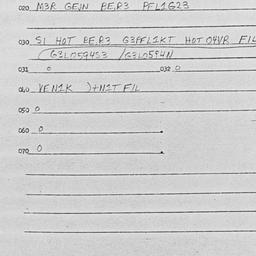 020 M3R GEJN BE,R3 PFL1G23
030 S1 HOT BE,R3 G3PFL2KT HOT O4VR FIL
(G3LO59453 /G3LO594N
031 O 032 O
040 VEN1K )+N1T FIL
050 O
060 O
070 O